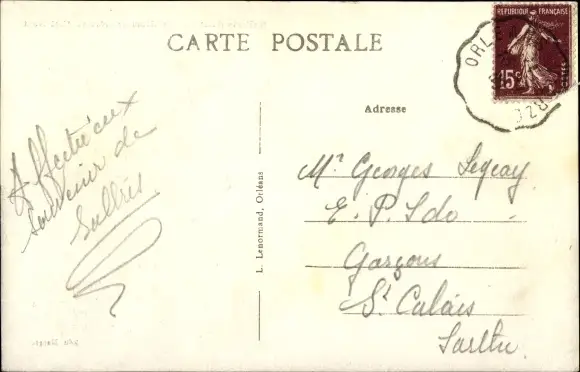 CARTE POSTALE
RÉPUBLIQUE FRANÇAISE
15c
ORLÉ
Adresse
Affectueux
souvenir de
L. Lenormand, Orléans
Mr Georges Legeay
E. P. S do
Garçons
St Calais
Sarthe